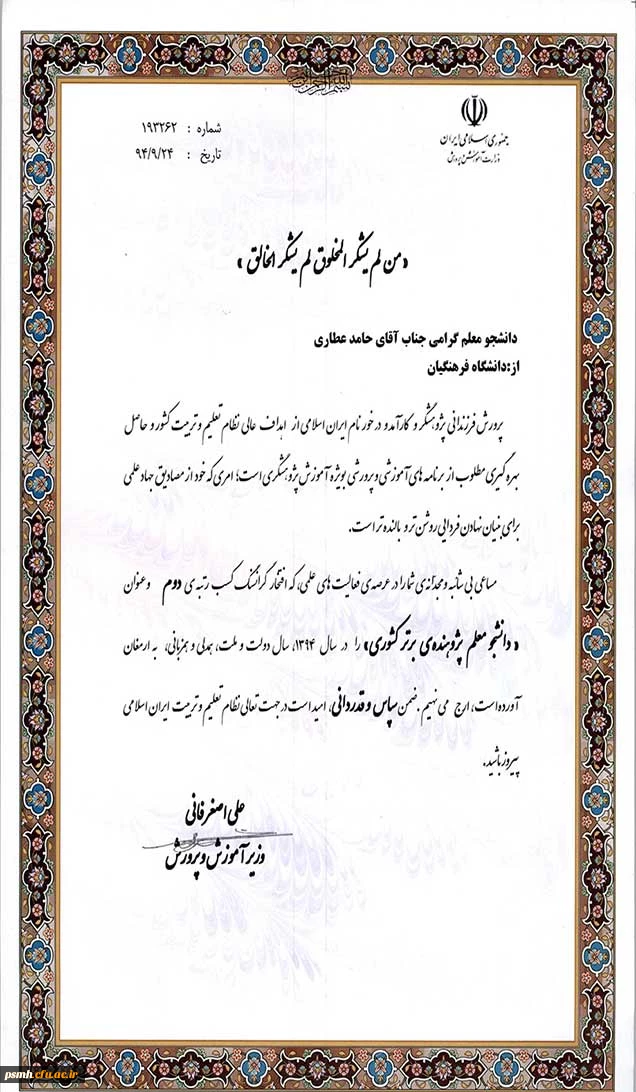 بسم الله الرحمن الرحیم
جمهوری اسلامی ایران
وزارت آموزش و پرورش
شماره : ۱۹۳۲۶۲
تاریخ : ۹۴/۹/۲۴
« من لم یشکر المخلوق لم یشکر الخالق »
دانشجو معلم گرامی جناب آقای حامد عطاری
از:دانشگاه فرهنگیان
پرورش فرزندانی پژوهشگر و کارآمد و درخور نام ایران اسلامی از اهداف عالی نظام تعلیم و تربیت کشور و حاصل
بهره گیری مطلوب از برنامه های آموزشی و پرورشی بویژه آموزش پژوهشگری است؛ امری که خود از مصادیق جهاد علمی
برای بنیان نهادن فردایی روشن تر و بالنده تر است.
مساعی بی شائبه و مجدانه ی شما را در عرصه ی فعالیت های علمی، که افتخار گرانسنگ کسب رتبه ی دوم و عنوان
« دانشجو معلم پژوهنده ی برتر کشوری» را در سال ۱۳۹۴، سال دولت و ملت، همدلی و همزبانی، به ارمغان
آورده است، ارج می نهیم .ضمن سپاس و قدردانی، امید است در جهت تعالی نظام تعلیم و تربیت ایران اسلامی
پیروز باشید.
علی اصغر فانی
وزیر آموزش و پرورش
psmh.cfu.ac.ir